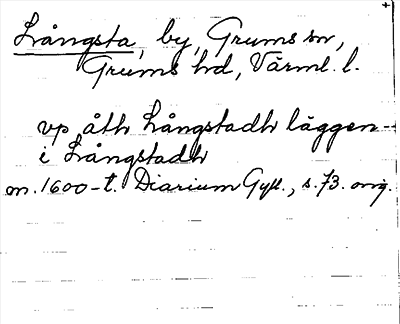 Långsta, by, Grums sn,
Grums hd, Värml. l.
vp åth Långstadh läggen-
i Långstadh
m. 1600-t. Diarium Gyll., s. 73. orig.